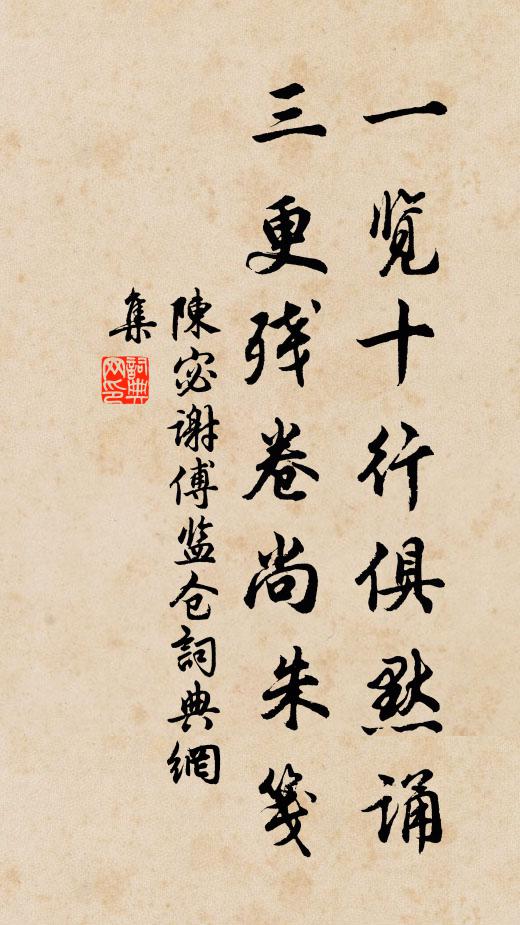 一览十行俱默诵
三更残卷尚朱笺
陳宓谢傅监仓詞典網
集
詞典網印